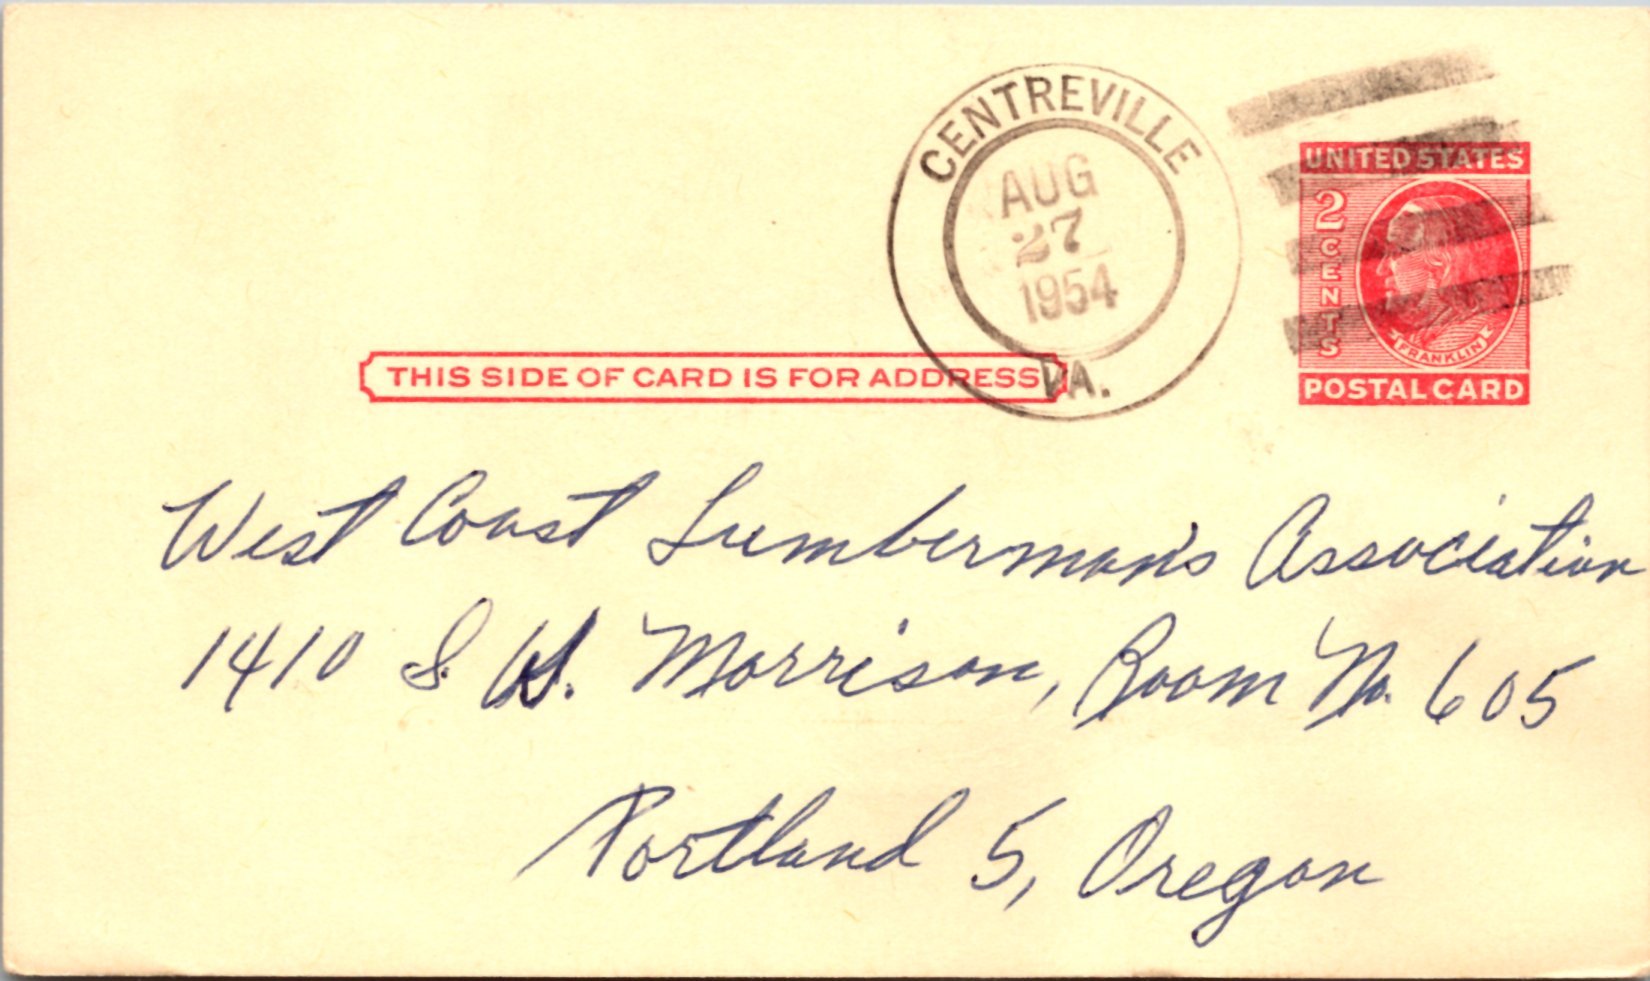 CENTREVILLE
AUG
27
1954
PA.
UNITED STATES
2 CENTS
FRANKLIN
POSTAL CARD
THIS SIDE OF CARD IS FOR ADDRESS
West Coast Lumberman's Association
1410 S. W. Morrison, Room No. 605
Portland 5, Oregon